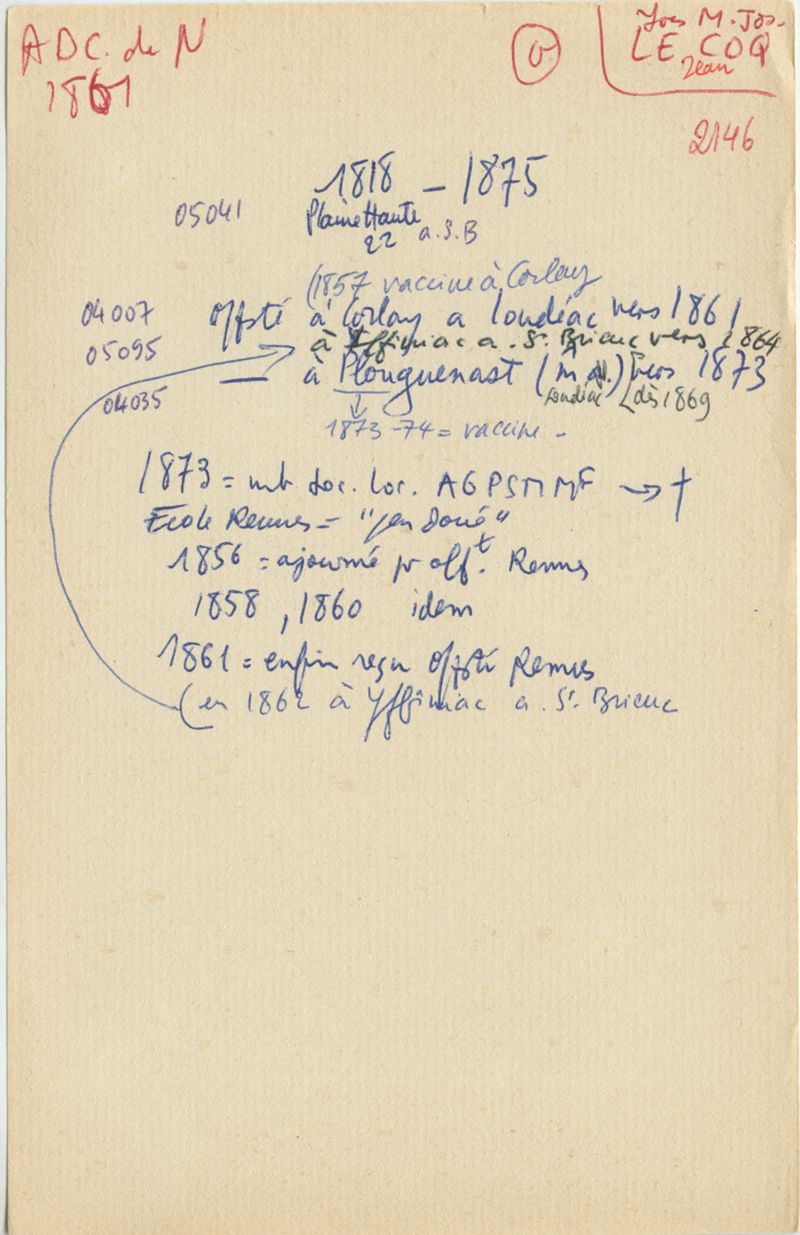 ADC. de N
1861
O
Yves M. Jos.
LE COQ
Jean
2146
1818 – 1875
05041
Plaine Haute
22 a. S. B
(1857 vaccine à Corlay
04007 Offsté à Corlay a Loudéac vers 1861
05095 à Yffiniac a. St. Brieuc vers 1864
— à Plouguenast (m a.) vers 1873
04035 Loudéac (dès 1869
1873-74 = vaccine –
1873 = mb Soc. loc. AGPSMMF → †
Ecole Rennes = "peu doué"
1856 = ajourné pr offt. Rennes
1858, 1860 idem
1861 = enfin reçu Offsté Rennes
(en 1862 à Yffiniac a. St. Brieuc